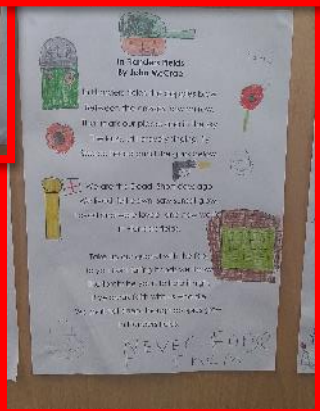 In Flanders Fields
By John McCrae
In Flanders fields the poppies blow
Between the crosses, row on row,
That mark our place; and in the sky
The larks, still bravely singing, fly
Scarce heard amid the guns below.
We are the Dead. Short days ago
We lived, felt dawn, saw sunset glow,
Loved and were loved, and now we lie
In Flanders fields.
Take up our quarrel with the foe:
To you from failing hands we throw
The torch; be yours to hold it high.
If ye break faith with us who die
We shall not sleep, though poppies grow
In Flanders fields.
Never